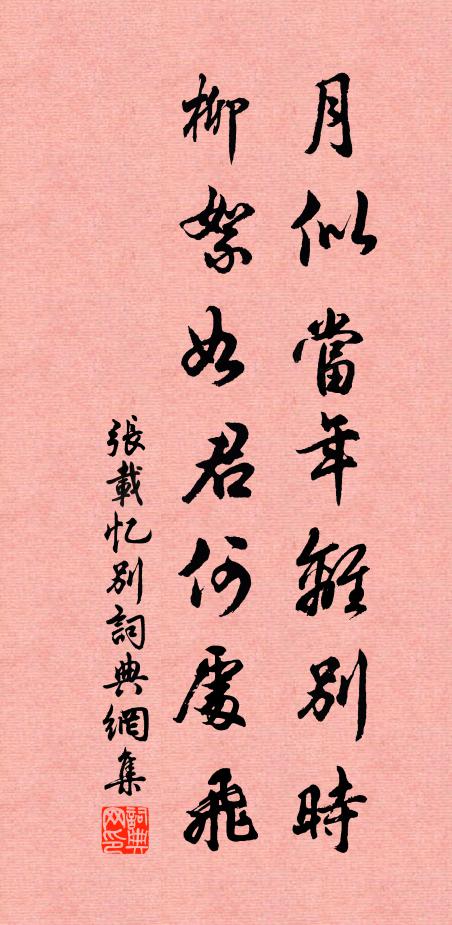 月似當年離別時
柳絮如君何處飛
張載忆別詞典網集
詞典网印